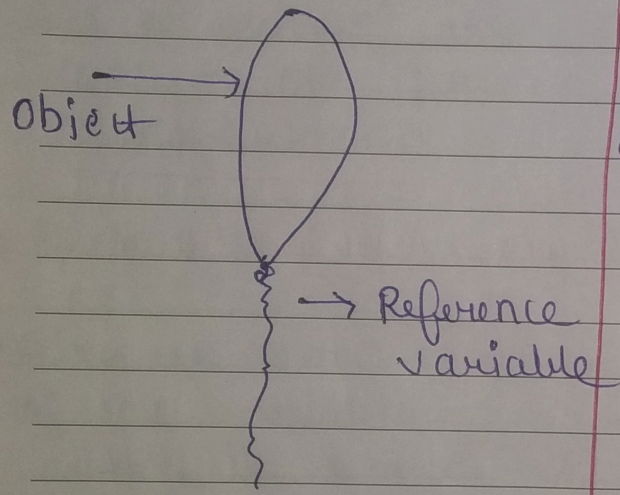 Object
Reference
variable